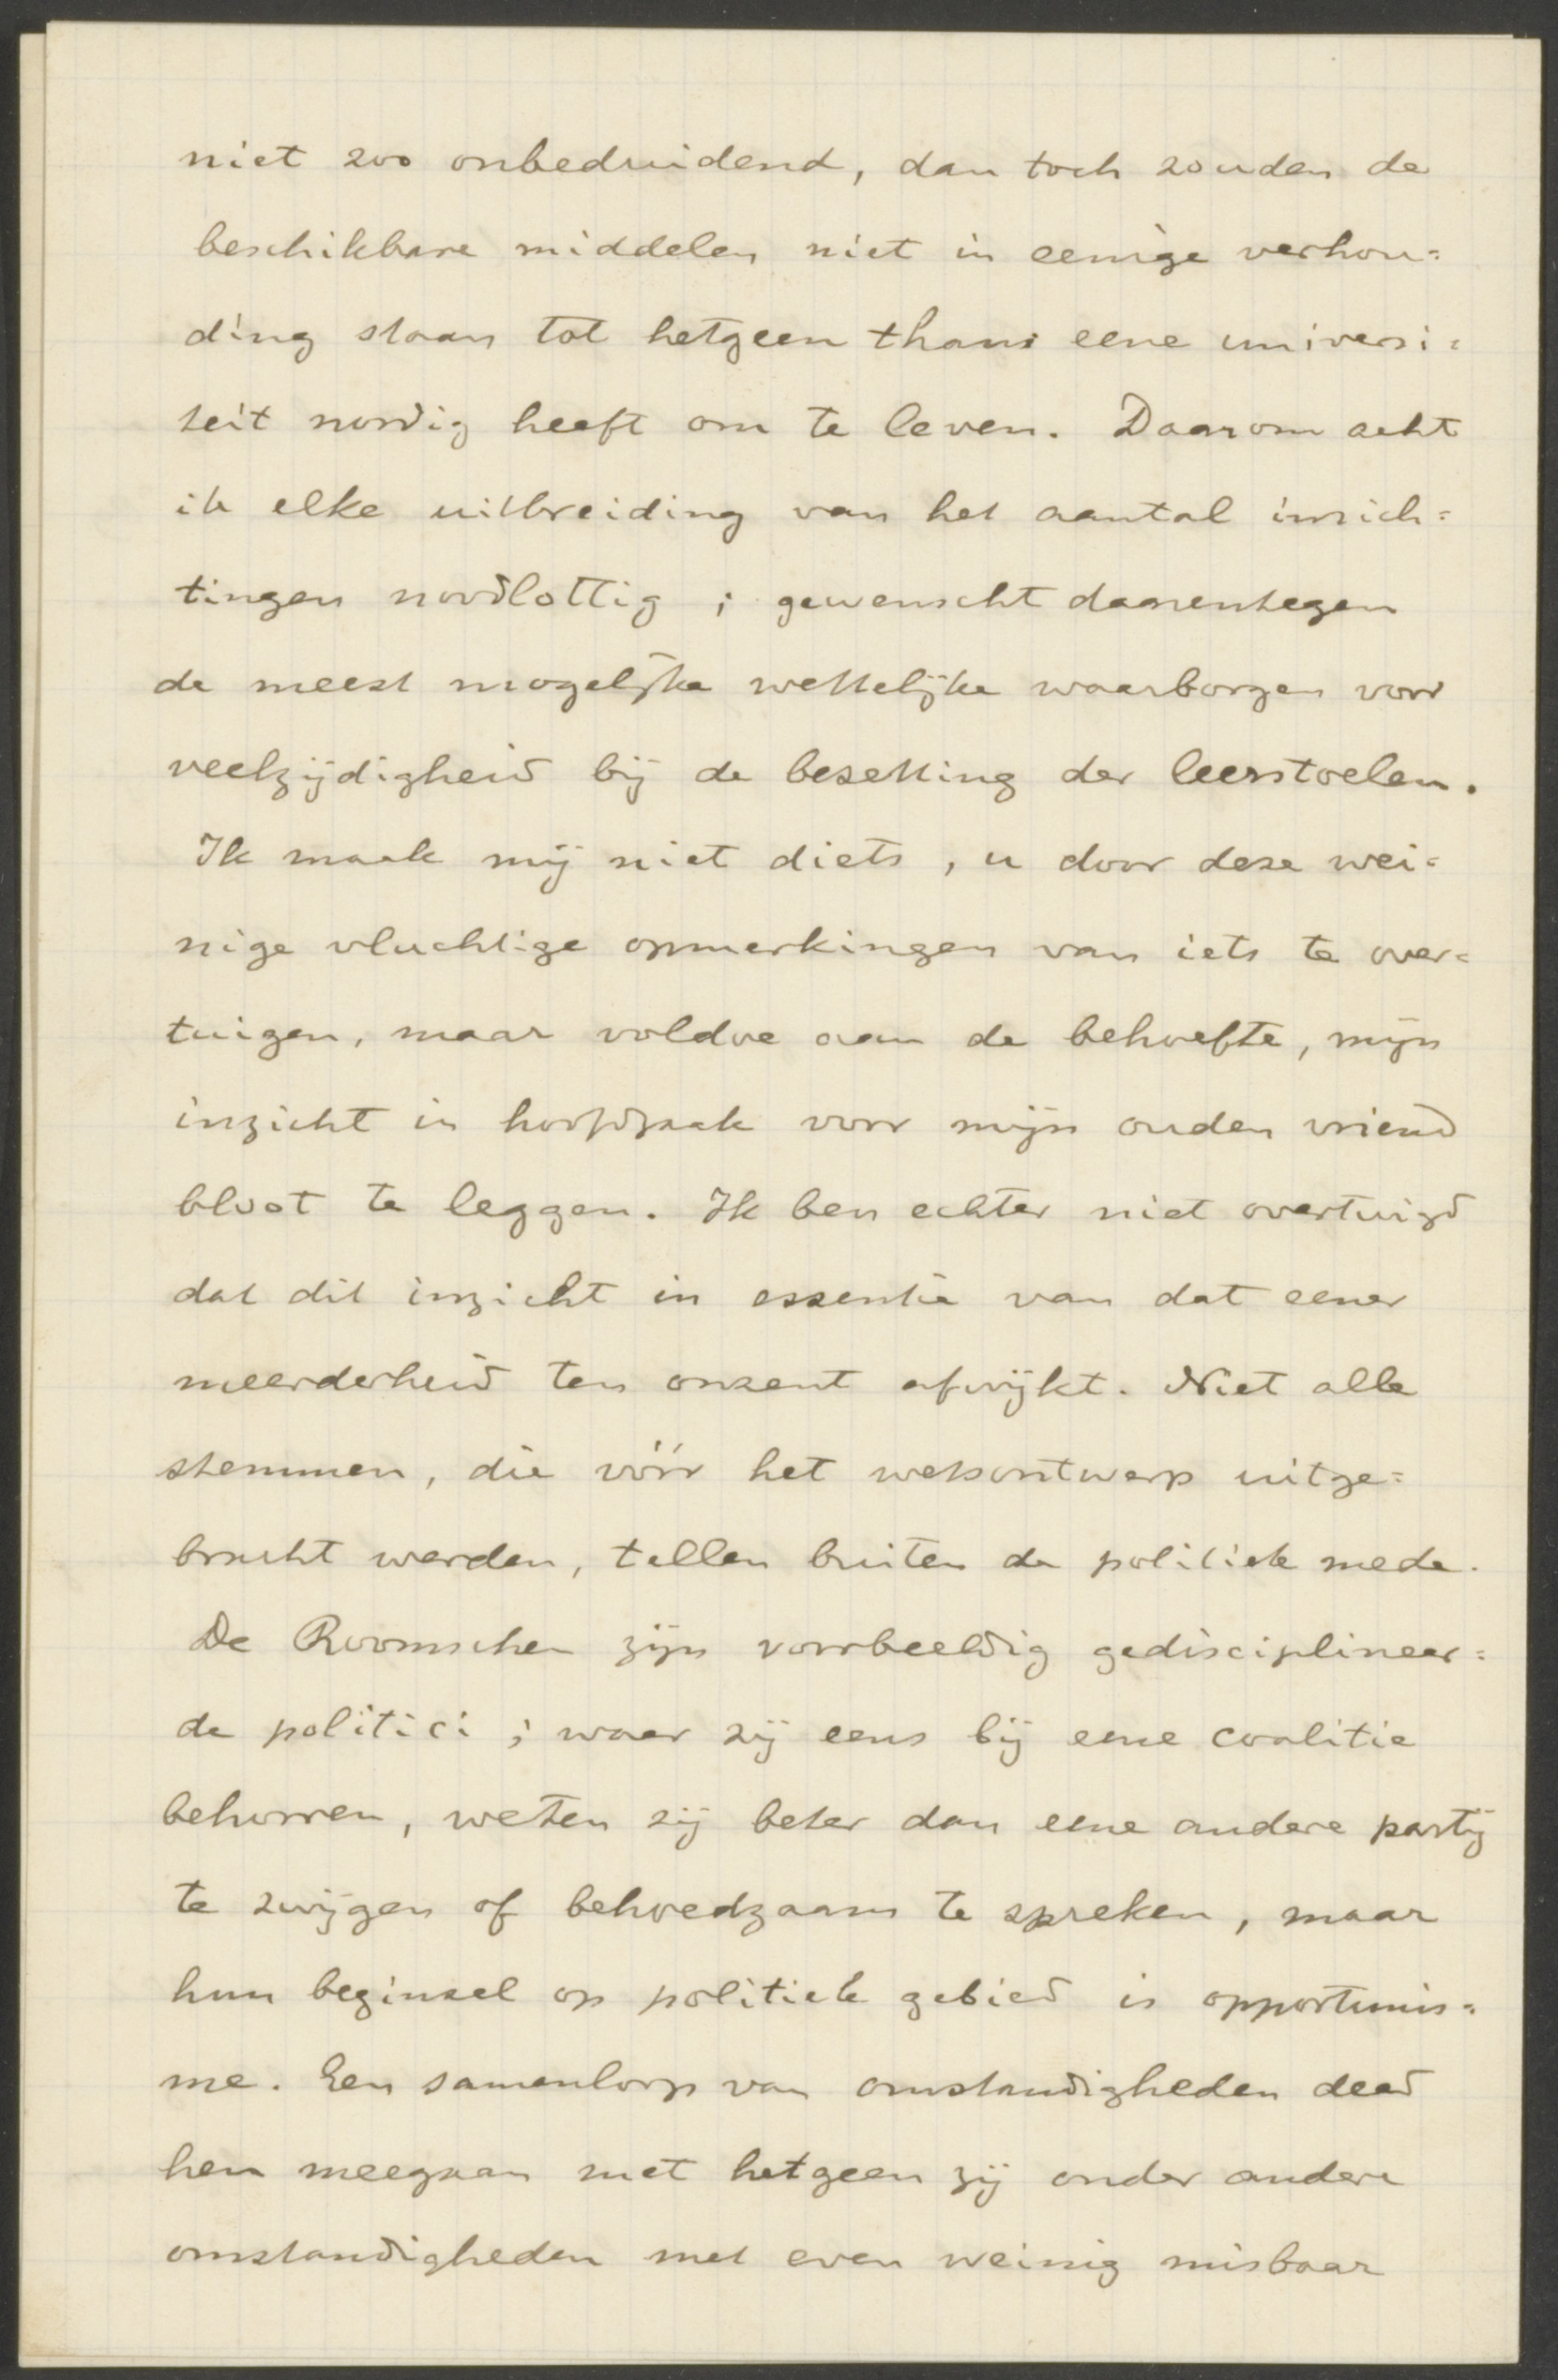 niet zoo onbeduidend, dan toch zouden de
beschikbare middelen niet in eenige verhou=
ding staan tot hetgeen thans eene universi=
teit noodig heeft om te leven. Daarom acht
ik elke uitbreiding van het aantal inrich=
tingen noodlottig ; gewenscht daarentegen
de meest mogelijke wettelijke waarborgen voor
veelzijdigheid bij de bezetting der leerstoelen.
Ik maak mij niet diets, u door deze wei=
nige vluchtige opmerkingen van iets te over=
tuigen, maar voldoe aan de behoefte, mijn
inzicht in hoofdzaak voor mijn ouden vriend
bloot te leggen. Ik ben echter niet overtuigd
dat dit inzicht in essentie van dat eener
meerderheid ten onzent afwijkt. Niet alle
stemmen, die vóór het wetsontwerp uitge=
bracht werden, tellen buiten de politiek mede.
De Roomschen zijn voorbeeldig gedisciplineer=
de politici ; waar zij eens bij eene coalitie
behooren, weten zij beter dan eene andere partij
te zwijgen of behoedzaam te spreken, maar
hun beginsel op politiek gebied is opportunis=
me. Een samenloop van omstandigheden deed
hen meegaan met hetgeen zij onder andere
omstandigheden met even weinig misbaar